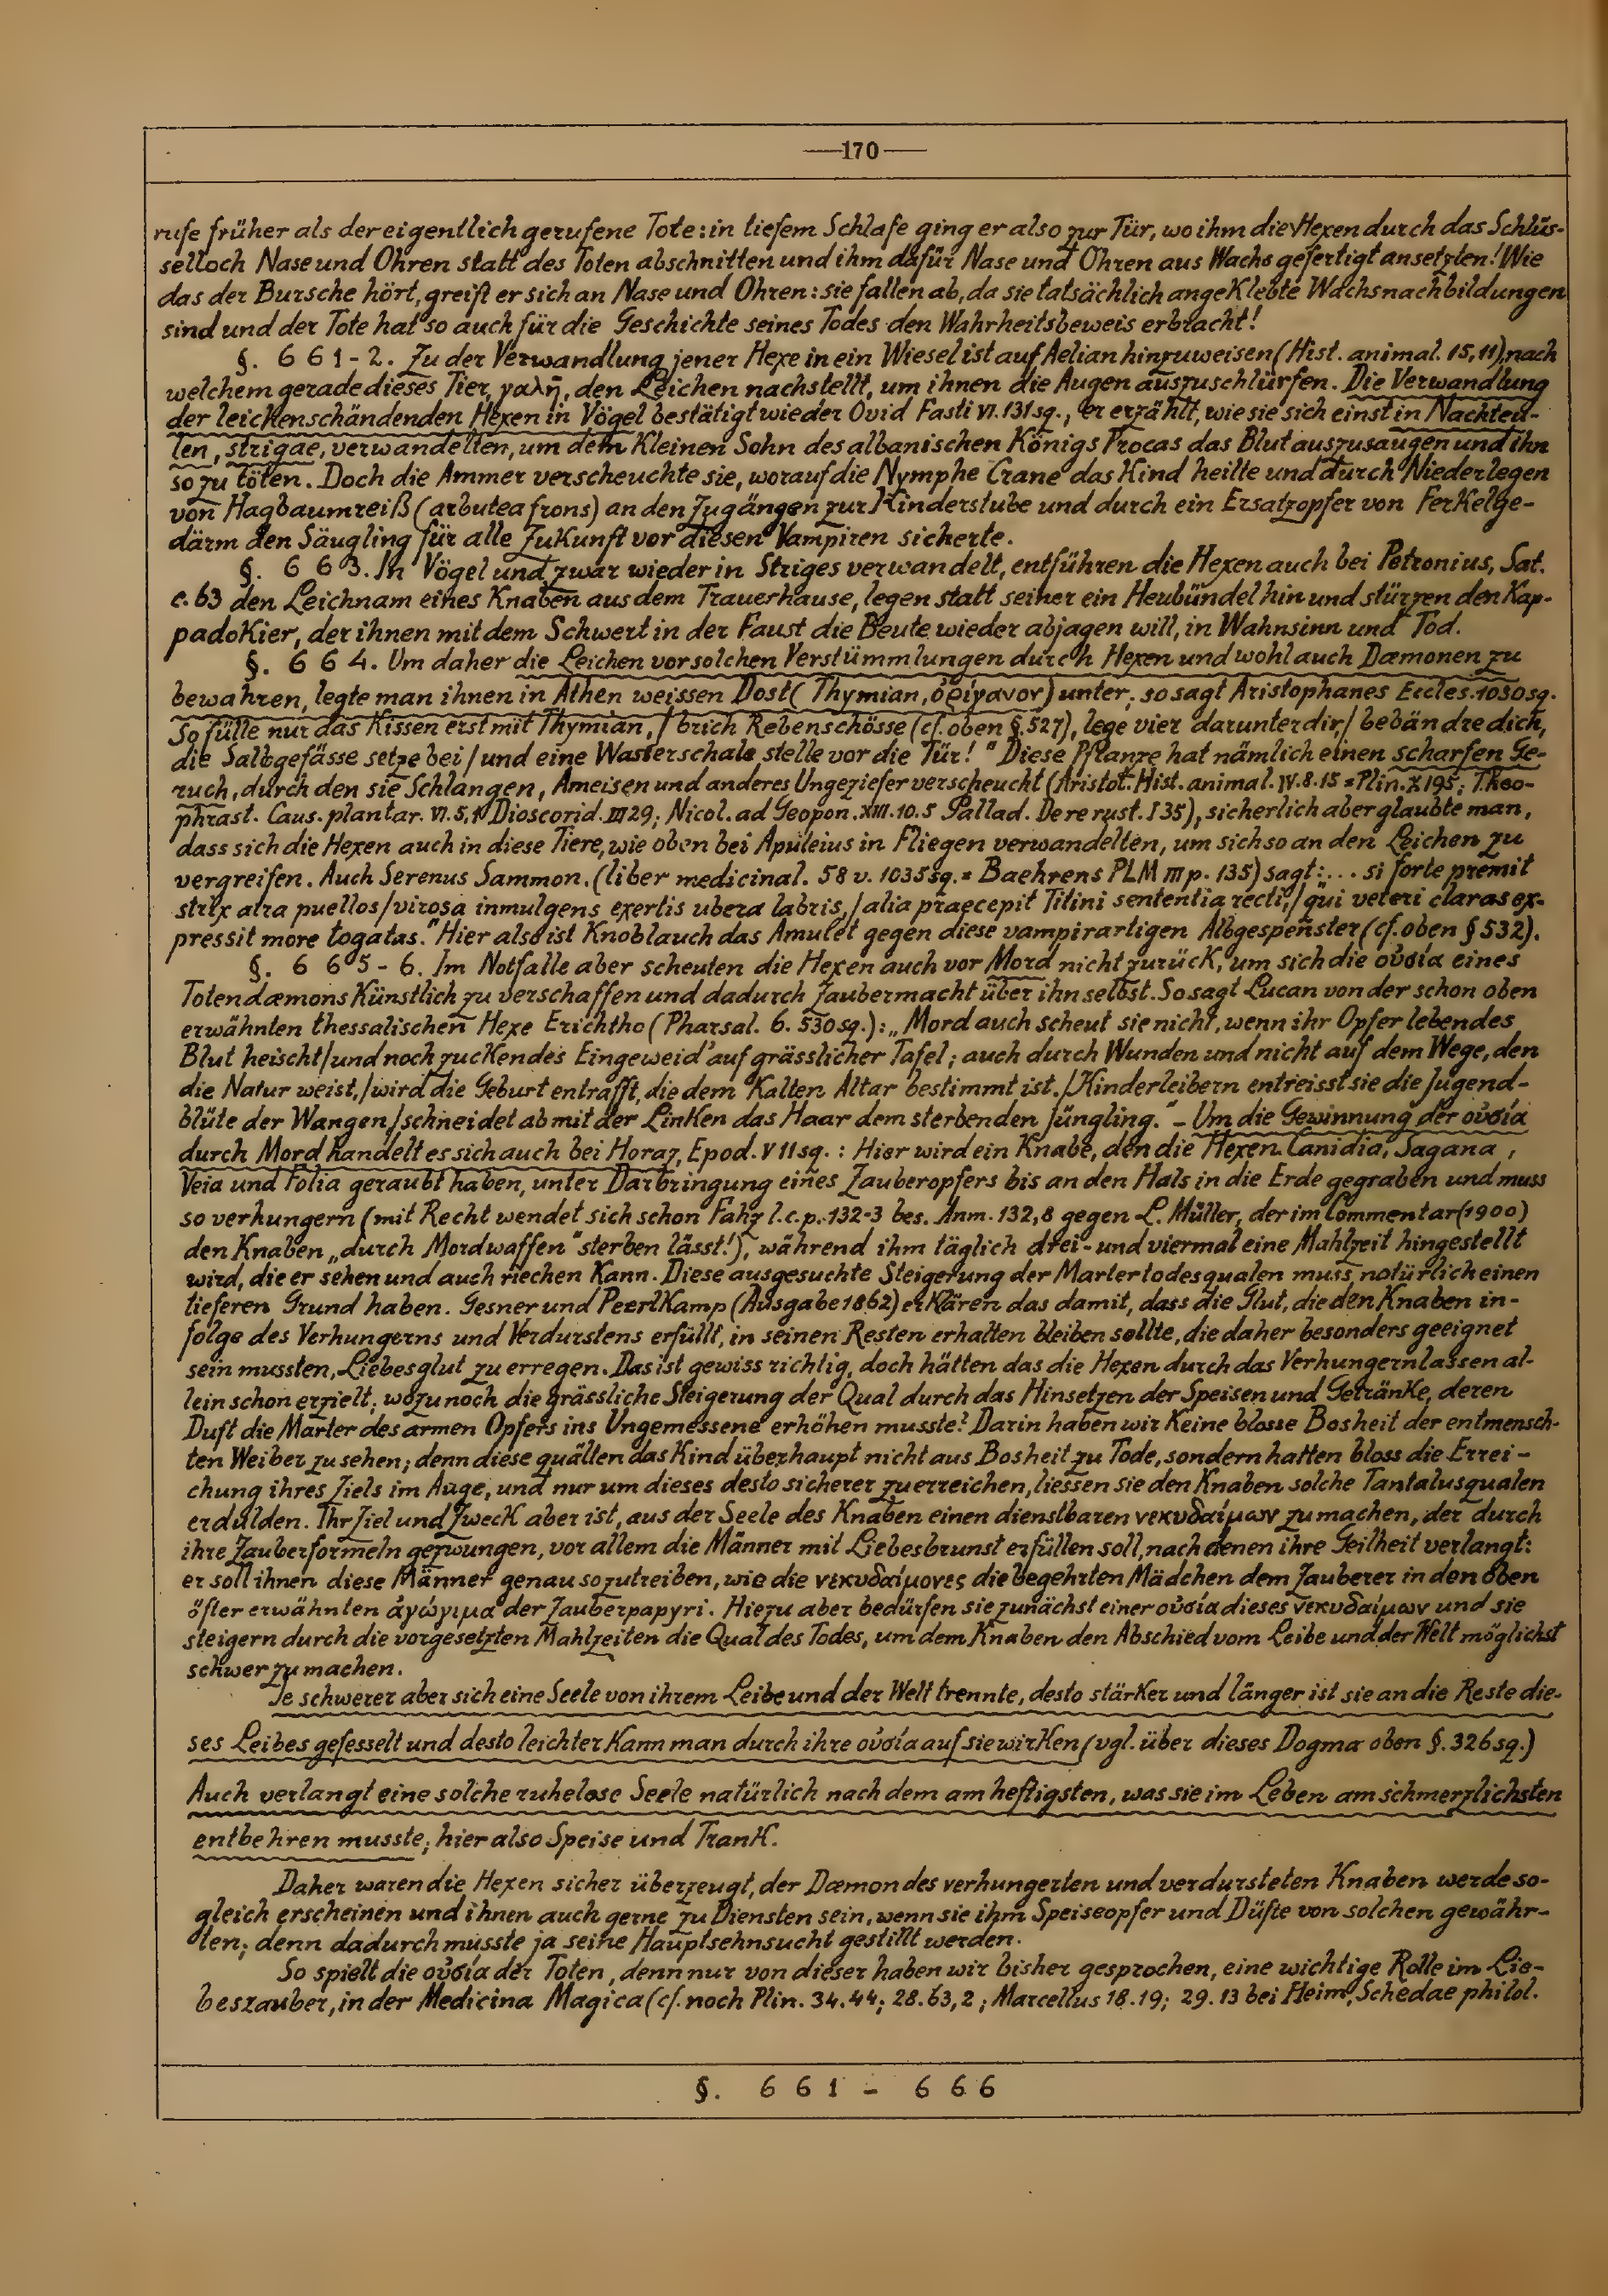 —170—
rufe früher als der eigentlich gerufene Tote: in tiefem Schlafe ging er also zur Tür, wo ihm die Hexen durch das Schlüs-
selloch Nase und Ohren statt des Toten abschnitten und ihm dafür Nase und Ohren aus Wachs gefertigt ansetzten! Wie
das der Bursche hört, greift er sich an Nase und Ohren: sie fallen ab, da sie tatsächlich angeklebte Wachsnachbildungen
sind und der Tote hat so auch für die Geschichte seines Todes den Wahrheitsbeweis erbracht!
§. 661-2. Zu der Verwandlung jener Hexe in ein Wiesel ist auf Aelian hinzuweisen (Hist. animal. 15,11), nach
welchem gerade dieses Tier, γαλῆ, den Leichen nachstellt, um ihnen die Augen auszuschlürfen. Die Verwandlung
der leichenschändenden Hexen in Vögel bestätigt wieder Ovid Fasti VI. 131 sq., er erzählt, wie sie sich einst in Nachteu-
len, strigae, verwandelten, um dem kleinen Sohn des albanischen Königs Procas das Blut auszusaugen und ihn
so zu töten. Doch die Ammer verscheuchte sie, worauf die Nymphe Crane das Kind heilte und durch Niederlegen
von Hagbaumreiß (arbutea frons) an den Zugängen zur Kinderstube und durch ein Ersatzopfer von Ferkelge-
därm den Säugling für alle Zukunft vor diesen Vampiren sicherte.
§. 663. In Vögel und zwar wieder in Striges verwandelt, entführen die Hexen auch bei Petronius, Sat.
c. 63 den Leichnam eines Knaben aus dem Trauerhause, legen statt seiner ein Heubündel hin und stürzen den Kap-
padokier, der ihnen mit dem Schwert in der Faust die Beute wieder abjagen will, in Wahnsinn und Tod.
§. 664. Um daher die Leichen vor solchen Verstümmlungen durch Hexen und wohl auch Dæmonen zu
bewahren, legte man ihnen in Athen weissen Dost (Thymian, ὀρίγανον) unter; so sagt Aristophanes Eccles. 1030 sq.
So fülle nur das Kissen erst mit Thymian, / brich Rebenschösse (cf. oben §. 527), lege vier darunter dir, / bebändre dich,
die Salbgefässe setze bei / und eine Wasserschale stelle vor die Tür!" Diese Pflanze hat nämlich einen scharfen Ge-
ruch, durch den sie Schlangen, Ameisen und anderes Ungeziefer verscheucht (Aristot. Hist. animal. IV. 8. 15 = Plin. X 195; Theo-
phrast. Caus. plantar. VI. 5, 1 Dioscorid. III 29; Nicol. ad Geopon. XIII. 10. 5 Pallad. De re rust. I 35), sicherlich aber glaubte man,
dass sich die Hexen auch in diese Tiere, wie oben bei Apuleius in Fliegen verwandelten, um sich so an den Leichen zu
vergreifen. Auch Serenus Sammon. (liber medicinal. 58 v. 1035 sq. = Baehrens PLM III p. 135) sagt: „... si forte premit
strix atra puellos / virosa inmulgens exertis ubera labris, / alia praecepit Titini sententia recti, / qui veteri claras ex-
pressit more togatas." Hier also ist Knoblauch das Amulet gegen diese vampirartigen Albgespenster (cf. oben § 532).
§. 665-6. Im Notfalle aber scheuten die Hexen auch vor Mord nicht zurück, um sich die οὐσία eines
Totendæmons künstlich zu verschaffen und dadurch Zaubermacht über ihn selbst. So sagt Lucan von der schon oben
erwähnten thessalischen Hexe Erichtho (Pharsal. 6. 530 sq.): „Mord auch scheut sie nicht, wenn ihr Opfer lebendes
Blut heischt / und noch zuckendes Eingeweid' auf grässlicher Tafel; auch durch Wunden und nicht auf dem Wege, den
die Natur weist, / wird die Geburt entrafft, die dem kalten Altar bestimmt ist. / Kinderleibern entreisst sie die Jugend-
blüte der Wangen / schneidet ab mit der Linken das Haar dem sterbenden Jüngling." – Um die Gewinnung der οὐσία
durch Mord handelt es sich auch bei Horaz, Epod. V 11 sq. : Hier wird ein Knabe, den die Hexen Canidia, Sagana,
Veia und Folia geraubt haben, unter Darbringung eines Zauberopfers bis an den Hals in die Erde gegraben und muss
so verhungern (mit Recht wendet sich schon Fahz l.c.p. 132-3 bes. Anm. 132,8 gegen L. Müller, der im Commentar (1900)
den Knaben „durch Mordwaffen" sterben lässt!), während ihm täglich drei- und viermal eine Mahlzeit hingestellt
wird, die er sehen und auch riechen kann. Diese ausgesuchte Steigerung der Martertodesqualen muss natürlich einen
tieferen Grund haben. Gesner und Peerlkamp (Ausgabe 1862) erklären das damit, dass die Glut, die den Knaben in-
folge des Verhungerns und Verdurstens erfüllt, in seinen Resten erhalten bleiben sollte, die daher besonders geeignet
sein mussten, Liebesglut zu erregen. Das ist gewiss richtig, doch hätten das die Hexen durch das Verhungernlassen al-
lein schon erzielt; wozu noch die grässliche Steigerung der Qual durch das Hinsetzen der Speisen und Getränke, deren
Duft die Marter des armen Opfers ins Ungemessene erhöhen musste? Darin haben wir keine blosse Bosheit der entmensch-
ten Weiber zu sehen; denn diese quälten das Kind überhaupt nicht aus Bosheit zu Tode, sondern hatten bloss die Errei-
chung ihres Ziels im Auge, und nur um dieses desto sicherer zu erreichen, liessen sie den Knaben solche Tantalusqualen
erdulden. Ihr Ziel und Zweck aber ist, aus der Seele des Knaben einen dienstbaren νεκυδαίμων zu machen, der durch
ihre Zauberformeln gezwungen, vor allem die Männer mit Liebesbrunst erfüllen soll, nach denen ihre Geilheit verlangt:
er soll ihnen diese Männer genau so zutreiben, wie die νεκυδαίμονες die begehrten Mädchen dem Zauberer in den oben
öfter erwähnten ἀγώγιμα der Zauberpapyri. Hiezu aber bedürfen sie zunächst einer οὐσία dieses νεκυδαίμων und sie
steigern durch die vorgesetzten Mahlzeiten die Qual des Todes, um dem Knaben den Abschied vom Leibe und der Welt möglichst
schwer zu machen.
Je schwerer aber sich eine Seele von ihrem Leibe und der Welt trennte, desto stärker und länger ist sie an die Reste die-
ses Leibes gefesselt und desto leichter kann man durch ihre οὐσία auf sie wirken (vgl. über dieses Dogma oben §. 326 sq.)
Auch verlangt eine solche ruhelose Seele natürlich nach dem am heftigsten, was sie im Leben am schmerzlichsten
entbehren musste; hier also Speise und Trank.
Daher waren die Hexen sicher überzeugt, der Dæmon des verhungerten und verdursteten Knaben werde so-
gleich erscheinen und ihnen auch gerne zu Diensten sein, wenn sie ihm Speiseopfer und Düfte von solchen gewähr-
ten; denn dadurch musste ja seine Hauptsehnsucht gestillt werden.
So spielt die οὐσία der Toten, denn nur von dieser haben wir bisher gesprochen, eine wichtige Rolle im Lie-
beszauber, in der Medicina Magica (cf. noch Plin. 34. 44; 28. 63, 2; Marcellus 18. 19; 29. 13 bei Heim, Schedae philol.
§. 661 - 666